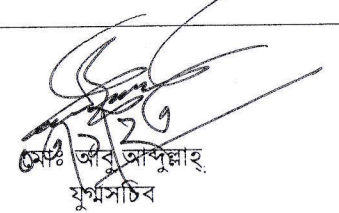 মোঃ আবু আব্দুল্লাহ্
যুগ্মসচিব